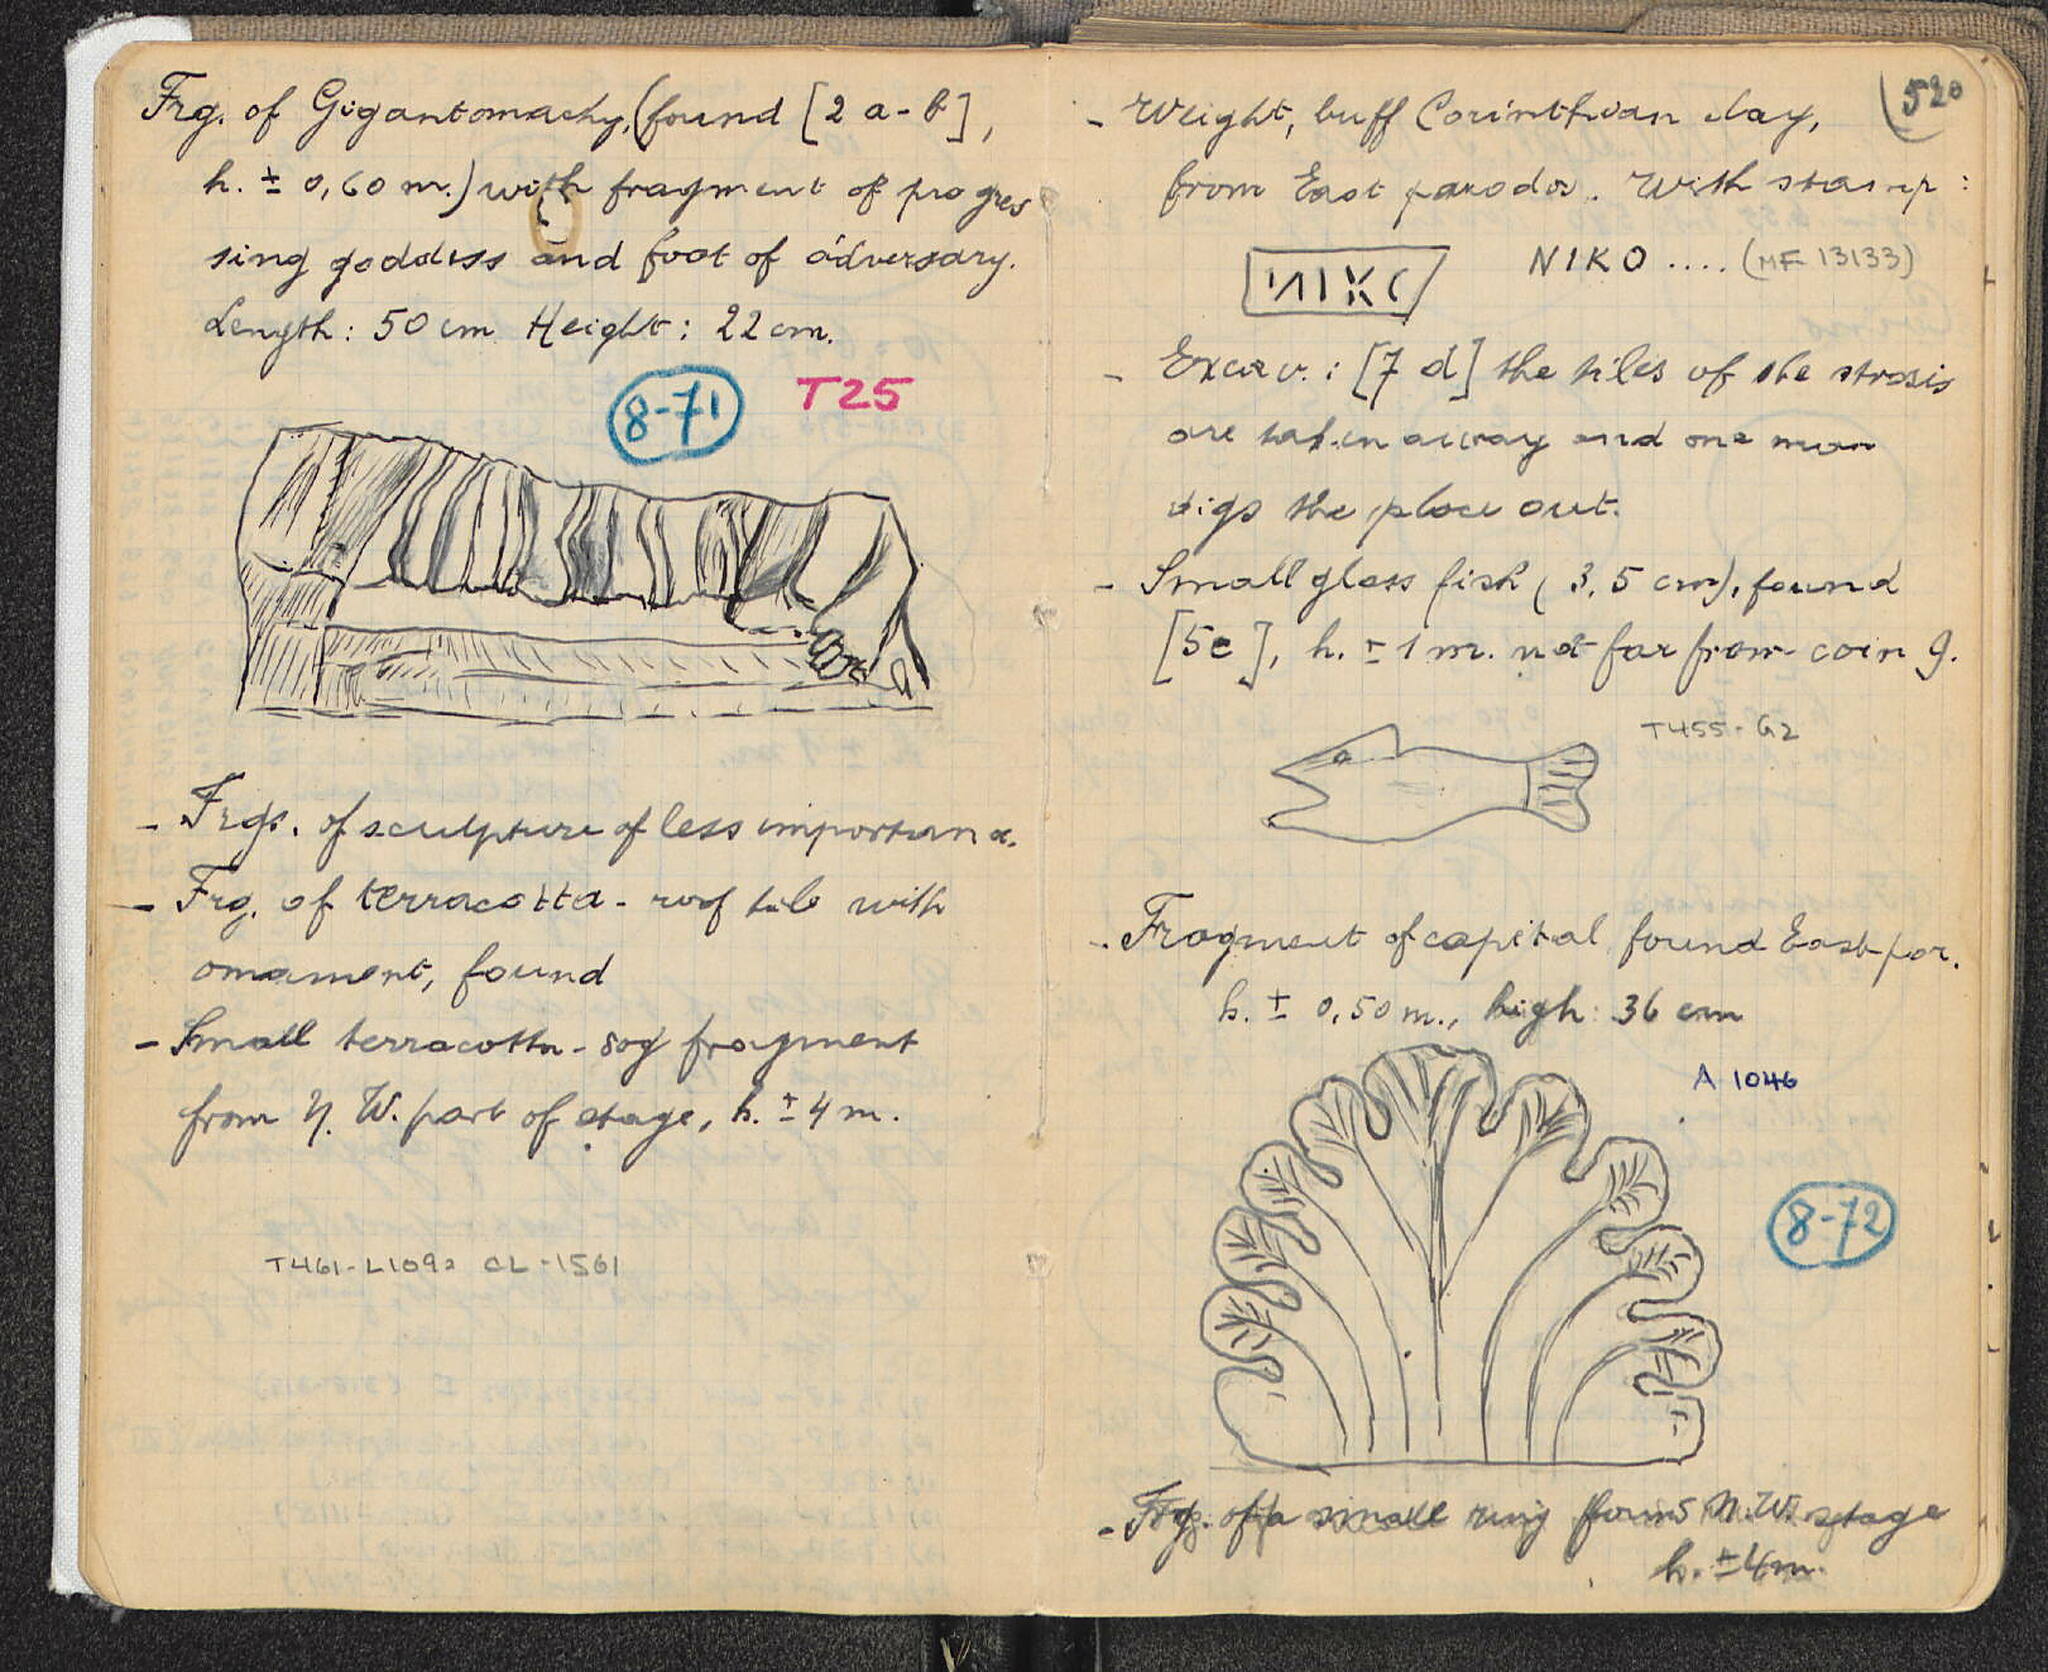 Frg. of Gigantomachy, (found [2 a-b],
h. ± 0,60 m.) with fragment of progres
sing goddess and foot of adversary.
Length: 50 cm Height: 22 cm.
8-71 T25
- Frgs. of sculpture of less importance.
- Frg. of terracotta-roof tile with
ornament, found
- Small terracotta-dog fragment
from N.W. part of stage, h. ± 4 m.
T461-L1092 CL-1561
520
- Weight, buff Corinthian clay,
from East parodos. With stamp:
ИIKC NIKO .... (MF 13133)
- Excav.: [7 d] the tiles of the strosis
are taken away and one man
digs the place out.
- Small glass fish (3,5 cm), found
[5e], h. ± 1 m. not far from coin 9.
T455-G2
- Fragment of capital found East-par.
h. ± 0,50 m., high: 36 cm
A 1046
8-72
- Frg. of a small ring found N.W. stage
h. ± 4 m.